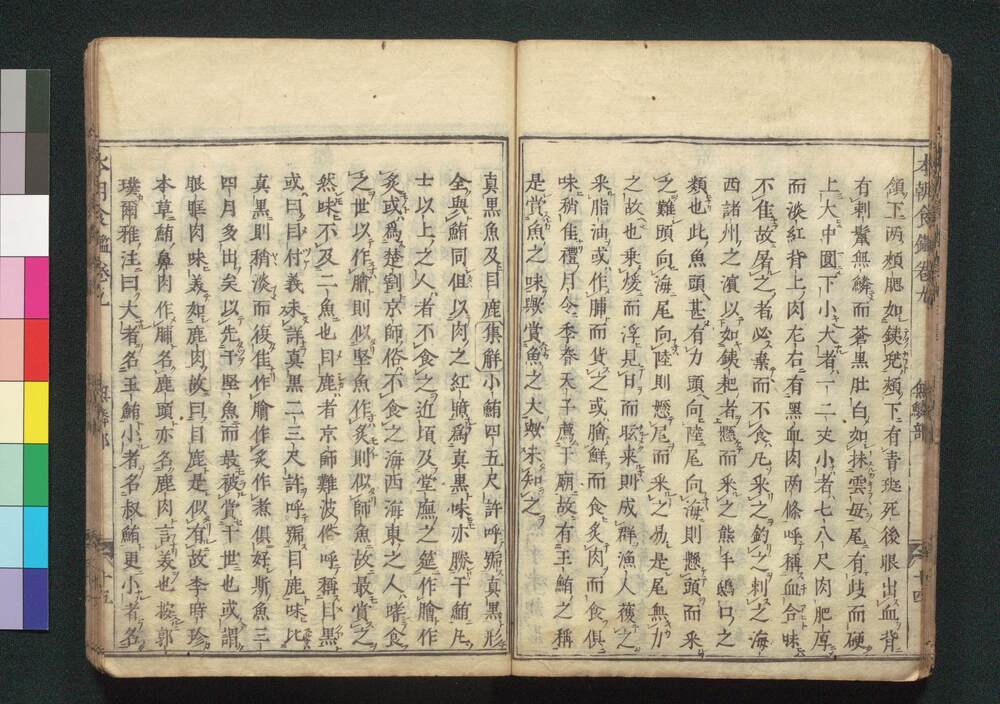 本朝食鑑卷九 無鱗部 十四
頷下兩頰腮如鐵兜頰下有青斑死後眼出血背
有刺鬐無鱗而蒼黑肚白如抹雲母尾有歧而硬
上大中圓下小大者一二丈小者七八尺肉肥厚
而淡紅背上肉左右有黑血肉兩條呼稱血合味
不佳故屠之者必棄而不食凡采之釣之刺之海
西諸州之濱以如鐵杷者懸而采之熊手鴟口之
類也此魚頭甚有力頭向陸尾向海則懸頭而采
之難頭向海尾向陸則懸尾而采之易是尾無力
之故也乘煖而浮見日而眩來則成群漁人穫之
采脂油或作脯而貨之或膾鮮而食炙肉而食俱
味稍佳禮月令季春天子薦于廟故有王鮪之稱
是賞魚之味歟賞魚之大歟未知之
真黑魚及目鹿集解小鮪四五尺許呼號真黑形
全與鮪同但以肉之紅贓為真黑味亦勝于鮪凡
士以上之人者不食之近頃及堂廡之筵作膾作
炙或為楚割京師俗不食之海西海東之人嗜食
之世以作膾則似堅魚作炙則似師魚故最賞之
然味不及二魚也目鹿者京師難波俗呼稱目黑
或曰目付義未詳真黑二三尺許呼號目鹿味比
真黑則稍淡而復佳作膾作炙作煮俱好斯魚三
四月多出矣以先于堅魚而最被賞于世也或謂
眼眶肉味美如鹿肉故曰目鹿是似有故李時珍
本草鮪鼻肉作脯名鹿頭亦名鹿肉言美也按郭
璞爾雅注曰大者名王鮪小者名叔鮪更小者名
本朝食鑑卷九 無鱗部 十五